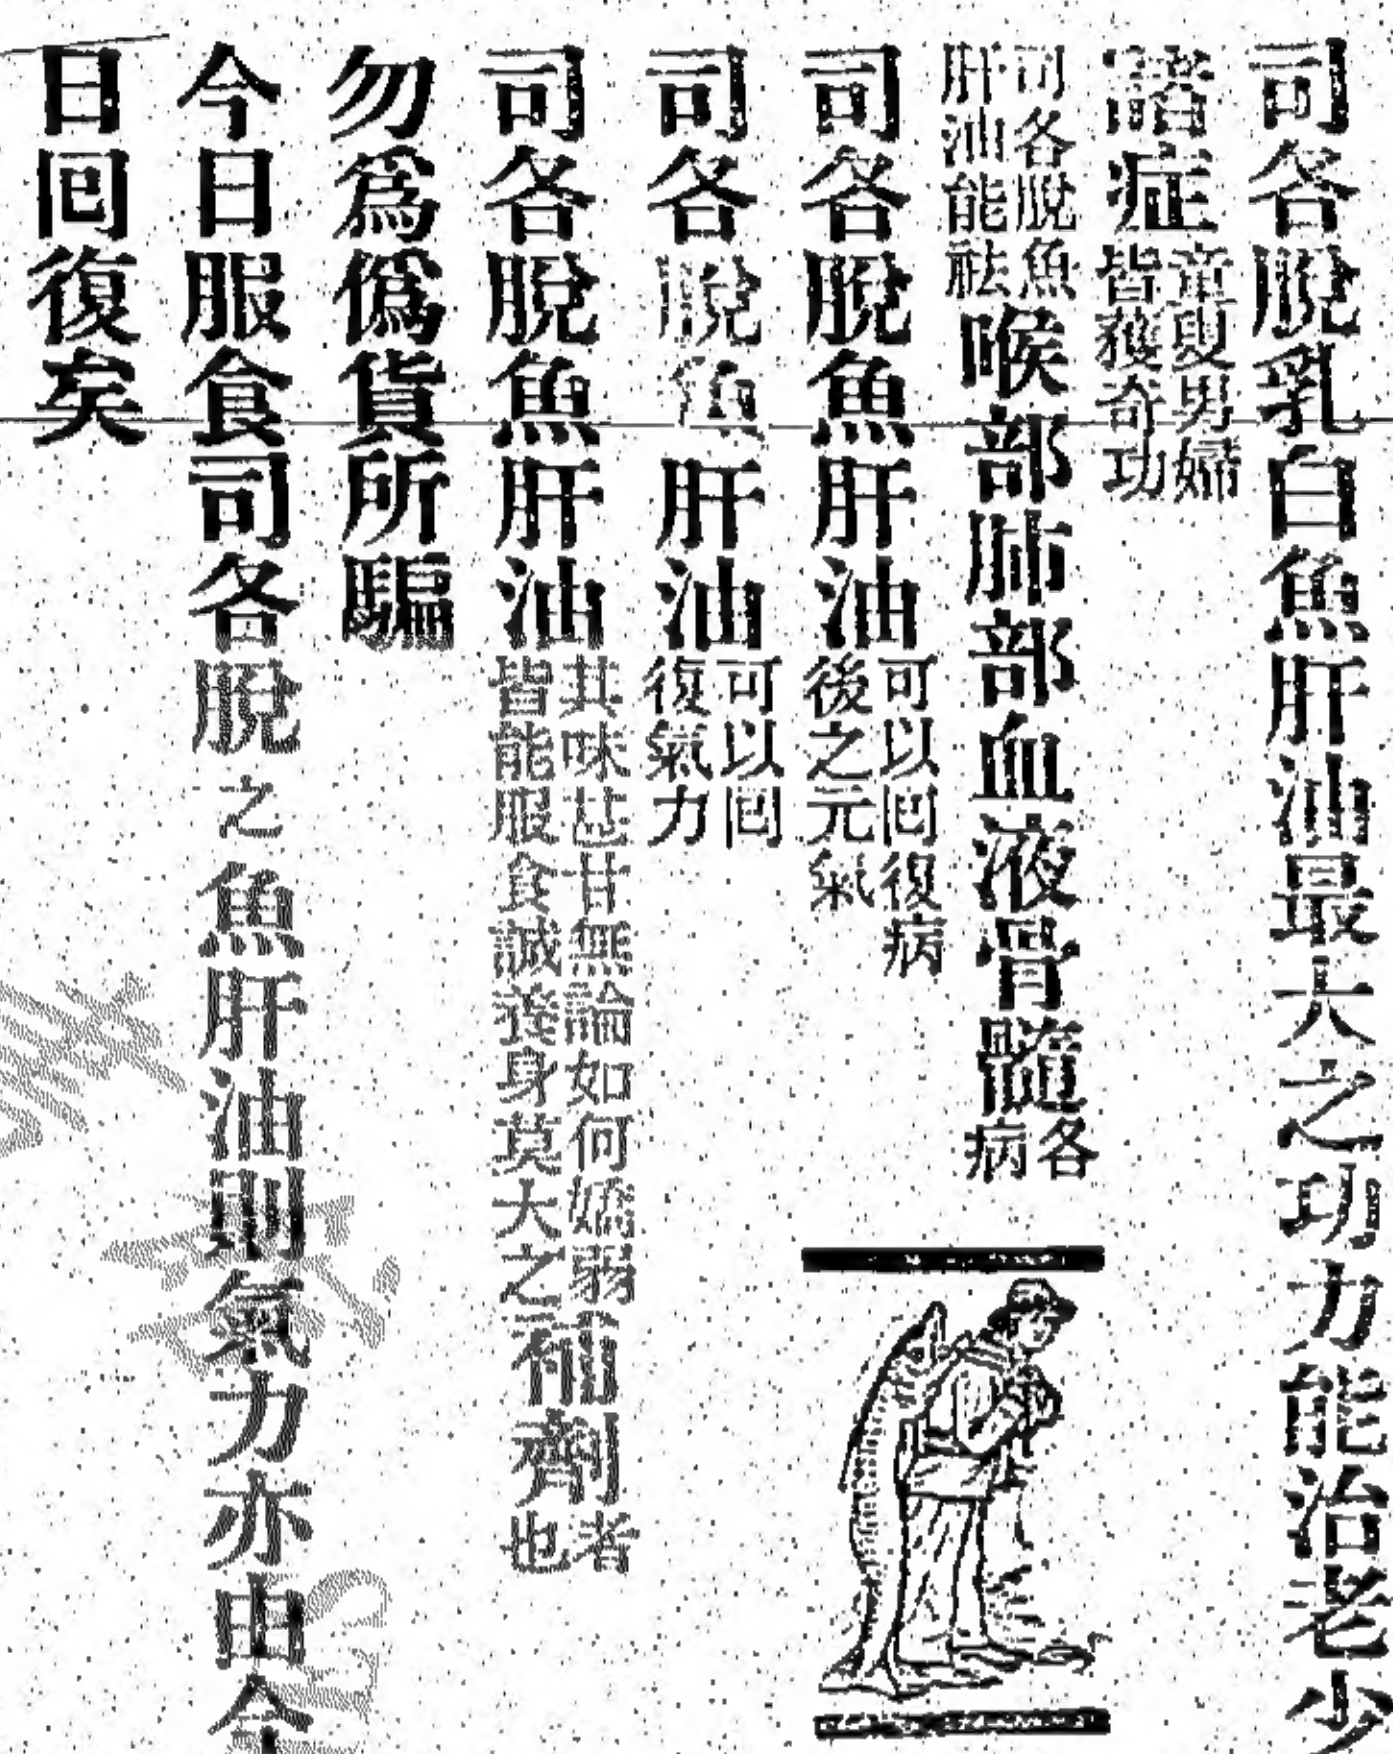 司各脫乳白魚肝油最大之功力能治老少
諸症童叟男婦皆獲奇功
司各脫魚肝油能祛喉部肺部血液骨髓各病
司各脫魚肝油可以囘復病後之元氣
司各脫魚肝油可以囘復氣力
司各脫魚肝油其味甚甘無論如何嬌弱者皆能服食誠養身莫大之補劑也
勿爲僞貨所騙
今日服食司各脫之魚肝油則氣力亦由今
日囘復矣